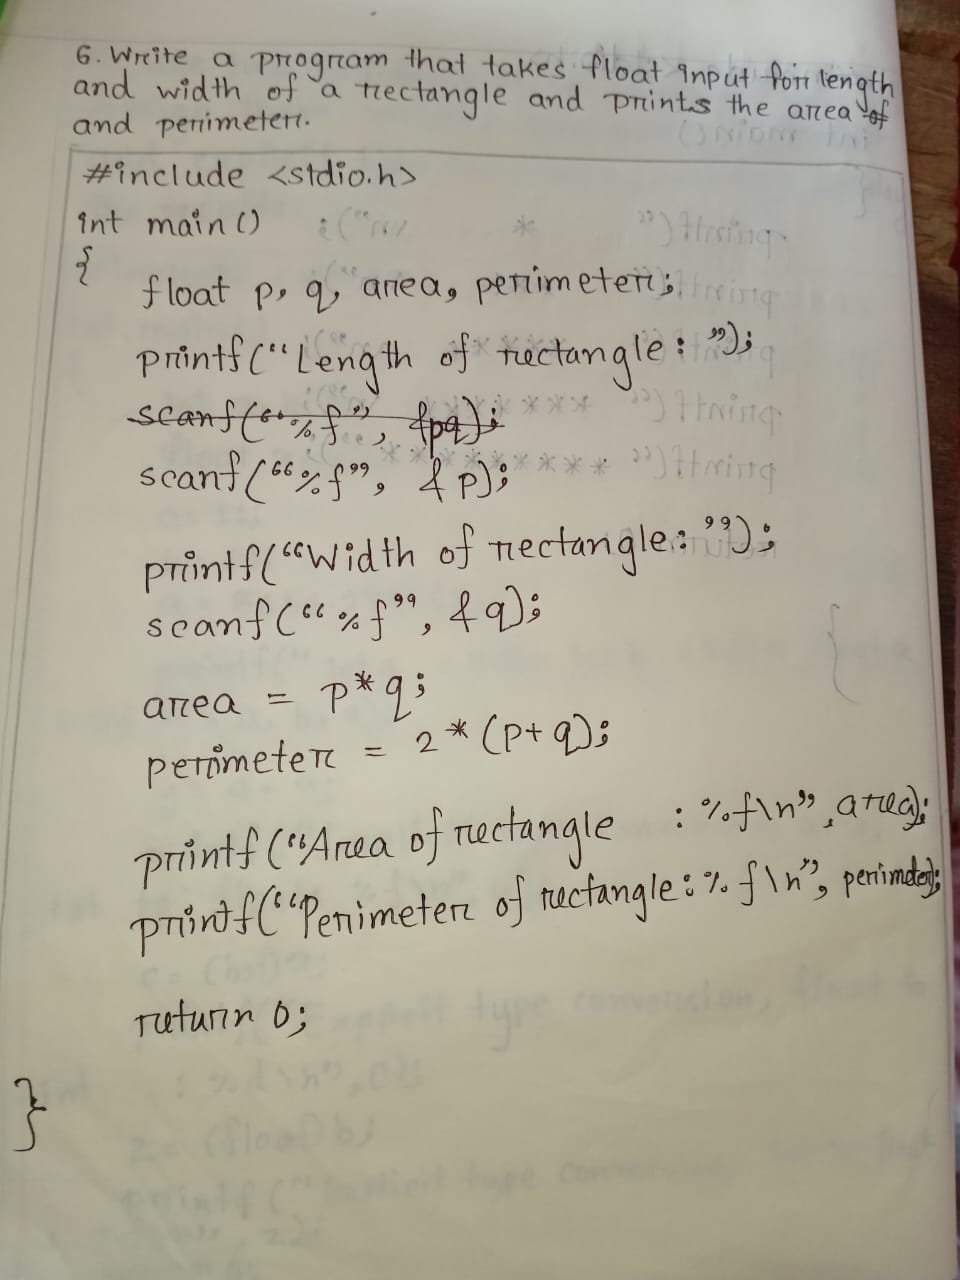 6. Write a program that takes float input for length
and width of a rectangle and prints the area of
and perimeter.
#include <stdio.h>
int main()
{
float p, q, area, perimeter;
printf("Length of rectangle: ");
scanf("%f", &pq);
scanf("%f", &p);
printf("Width of rectangle: ");
scanf("%f", &q);
area = p*q;
perimeter = 2*(p+q);
printf("Area of rectangle : %f\n", area);
printf("Perimeter of rectangle: %f\n", perimeter);
return 0;
}